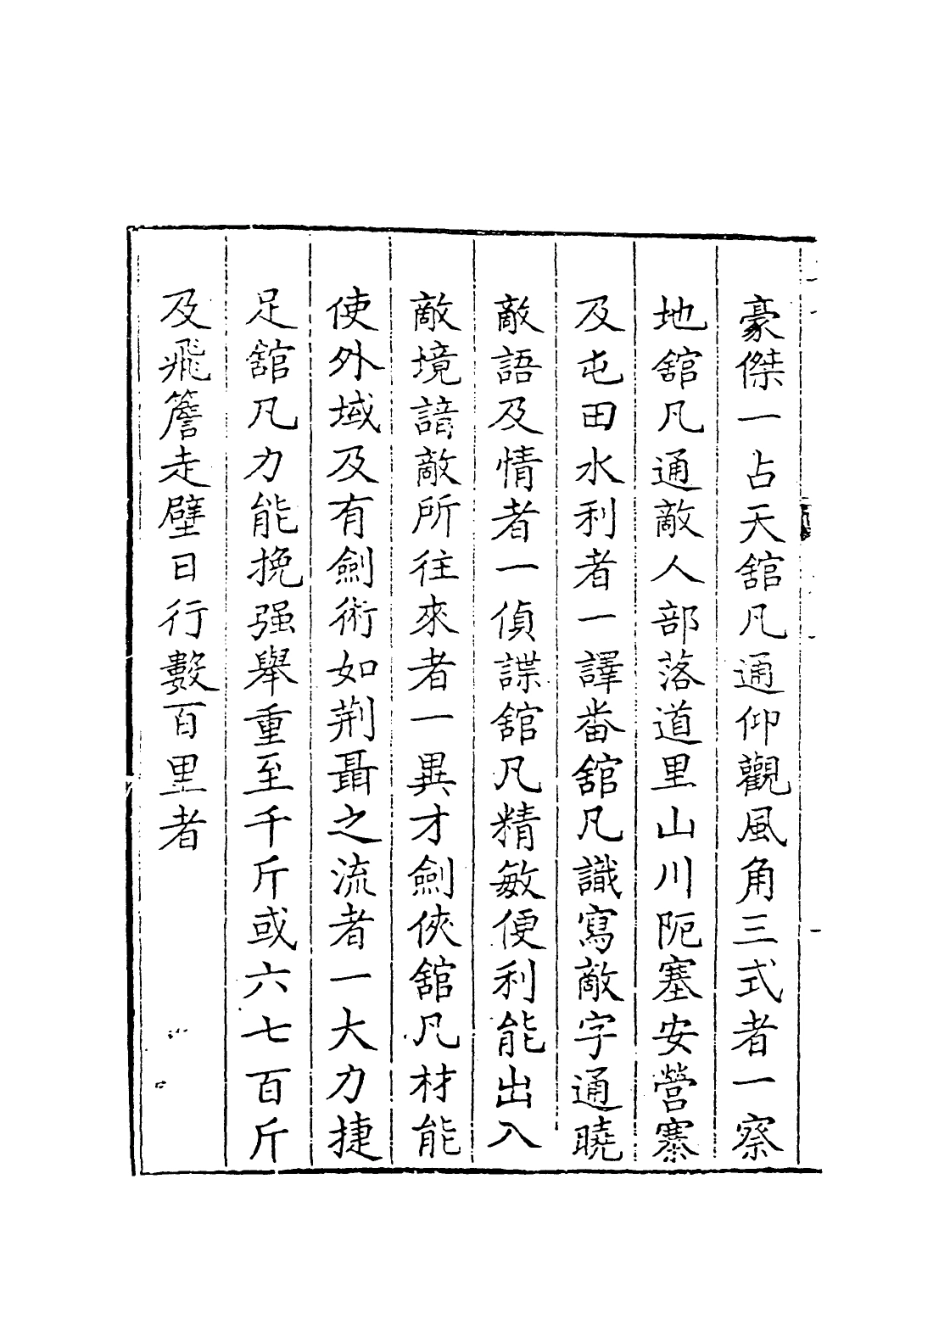 豪傑一占天舘凡通仰觀風角三式者一察
地舘凡通敵人部落道里山川阨塞安營寨
及屯田水利者一譯畨舘凡識寫敵字通曉
敵語及情者一偵諜舘凡精敏便利能出入
敵境諳敵所徃來者一異才劍俠舘凡材能
使外域及有劍術如荆聶之流者一大力捷
足舘凡力能挽强舉重至千斤或六七百斤
及飛簷走壁日行數百里者